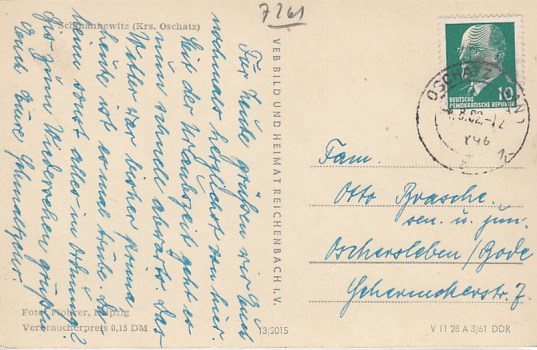 7261
Schmannewitz (Krs. Oschatz)
Für heute grüßen wir Euch
nochmals herzlichst von hier
Seit der Urlaubszeit geht es
nun schnell abwärts. Das
Wetter war bisher prima
heute ist es mal trübe. Bei
Euch sonst alles in Ordnung?
Bis zum Wiedersehen grüßen
Euch Eure
VEB BILD UND HEIMAT REICHENBACH I. V.
Foto: Leipzig
Verbraucherpreis 0,15 DM
13/2015
DEUTSCHE
DEMOKRATISCHE REPUBLIK
10
OSCHATZ
Fam.
Otto Brasche
sen. u. jun.
Oschersleben/Bode
V 11 28 A 3/61 DDR